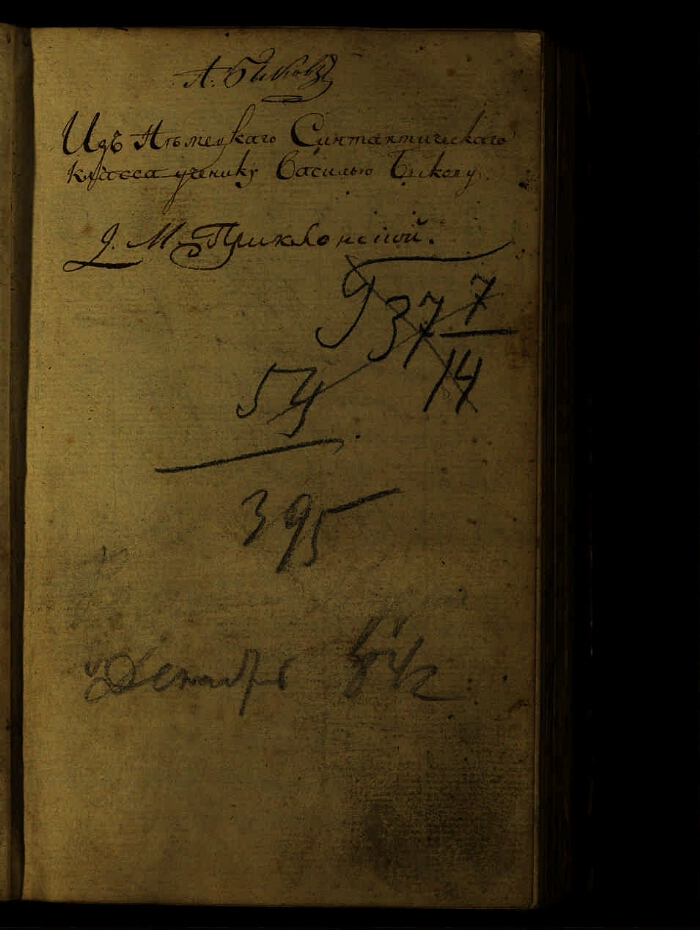 А. Быковъ
Изъ Нѣмецкаго Синтактическаго
класса ученику Василью Быкову.
Д. М. Приклонской.
9377
14
54
395
Декабрь